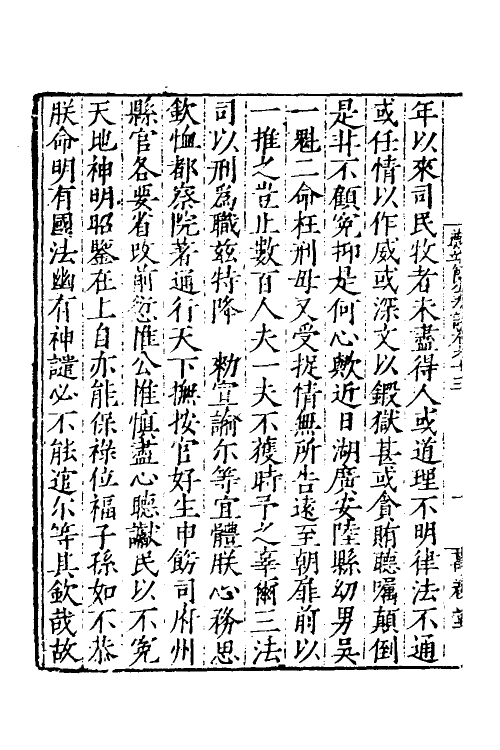 年以來司民牧者未盡得人或道理不明律法不通
或任情以作威或深文以鍛獄甚或貪賄聽囑顛倒
是非不顧冤抑是何心歟近日湖廣安陸縣幼男吳
一魁二命枉刑母又受捉情無所告遠至朝扉前以
一推之豈止數百人夫一夫不獲時予之辜爾三法
司以刑爲職兹特降 勑宣諭尓等宜體朕心務思
欽恤都察院著通行天下撫按官好生申飭司府州
縣官各要省改前愆惟公惟慎盡心聽讞民以不冤
天地神明昭鑒在上自亦能保祿位福子孫如不恭
朕命明有國法幽有神譴必不能逭尓等其欽哉故